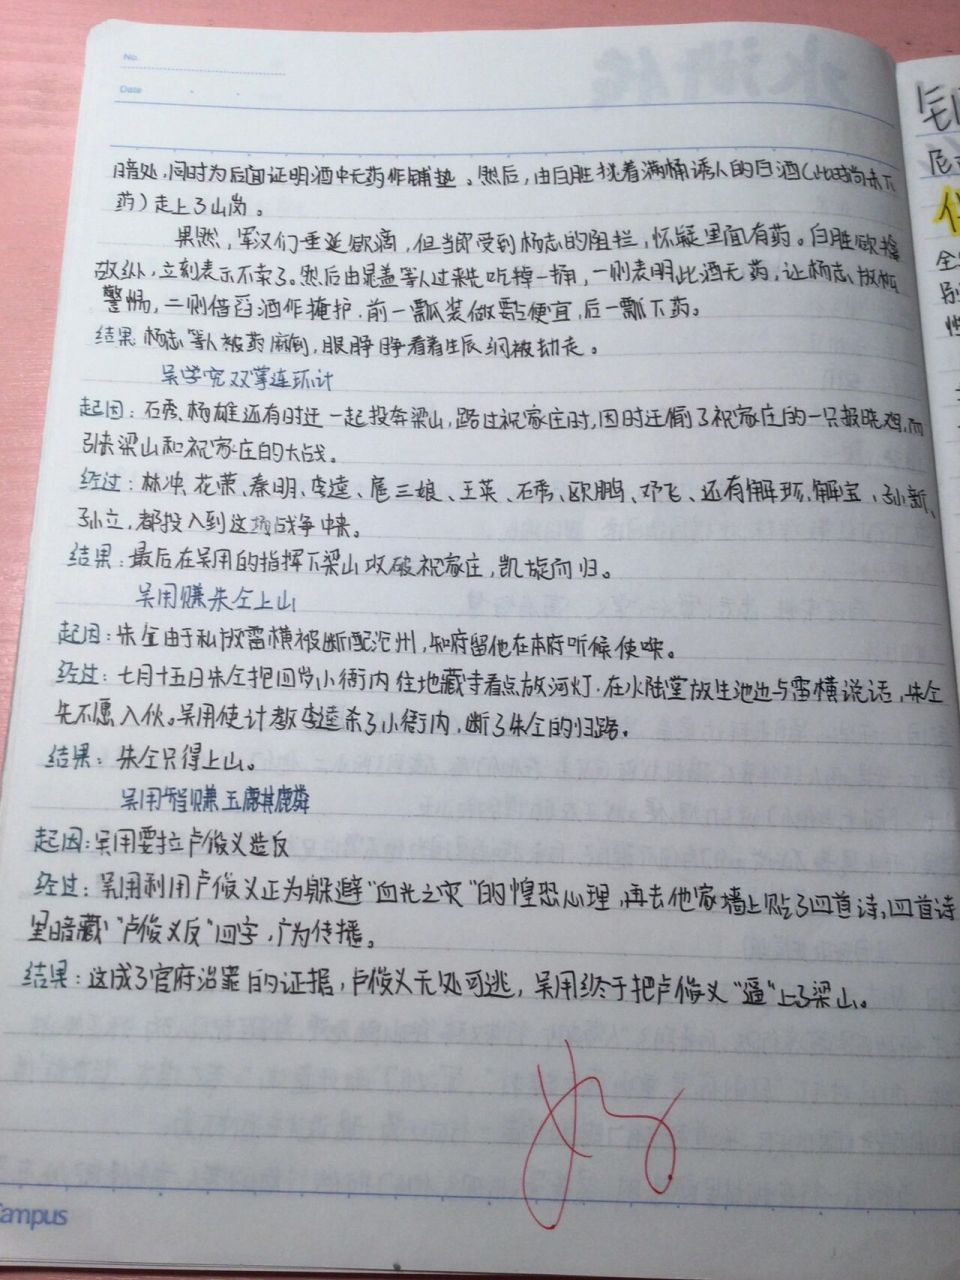 No.
Date
暗处,同时为后面证明酒中无药作铺垫。然后,由白胜挑着满桶诱人的白酒(此时尚未下
药)走上了山岗。
果然,军汉们垂涎欲滴,但当即受到杨志的阻拦,怀疑里面有药。白胜欲擒
故纵,立刻表示不卖了。然后由晁盖等人过来先吃掉一桶,一则表明此酒无药,让杨志放松
警惕,二则借舀酒作掩护.前一瓢装做要占便宜,后一瓢下药。
结果:杨志等人被药麻倒,眼睁睁看着生辰纲被劫走。
吴学究双掌连环计
起因:石秀、杨雄还有时迁一起投奔梁山,路过祝家庄时,因时迁偷了祝家庄的一只报晓鸡,而
引来梁山和祝家庄的大战。
经过:林冲、花荣、秦明、李逵、扈三娘、王英、石秀、欧鹏、邓飞、还有解珍、解宝、孙新、
孙立,都投入到这场战争中来。
结果:最后在吴用的指挥下梁山攻破祝家庄,凯旋而归。
吴用赚朱仝上山
起因:朱仝由于私放雷横被断配沧州,知府留他在本府听候使唤。
经过:七月十五日朱仝抱四岁小衙内往地藏寺看点放河灯.在水陆堂放生池边与雷横说话,朱仝
先不愿入伙。吴用使计教李逵杀了小衙内,断了朱仝的归路。
结果:朱仝只得上山。
吴用智赚玉麒麟
起因:吴用要拉卢俊义造反
经过:吴用利用卢俊义正为躲避"血光之灾"的惶恐心理,再去他家墙上贴了四首诗,四首诗
里暗藏"卢俊义反"四字,广为传播。
结果:这成了官府治罪的证据,卢俊义无处可逃,吴用终于把卢俊义"逼"上了梁山。
Campus